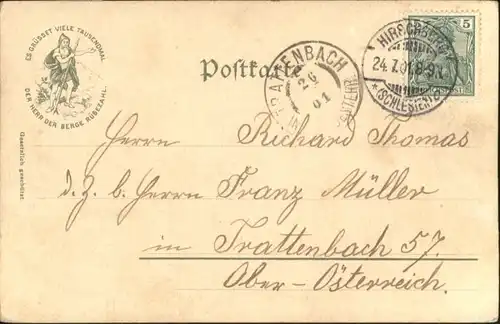 ES GRÜSSET VIELE TAUSENDMAL
DER HERR DER BERGE RÜBEZAHL.
Gesetzlich geschützt.
Postkarte
TRATTENBACH
26
01
5
HIRSCHBERG
24.7.01.8-9.V.
*(SCHLESIEN)
Herrn Richard Thomas
d. Z. b. Herrn Franz Müller
in Trattenbach 57.
Ober-Österreich.